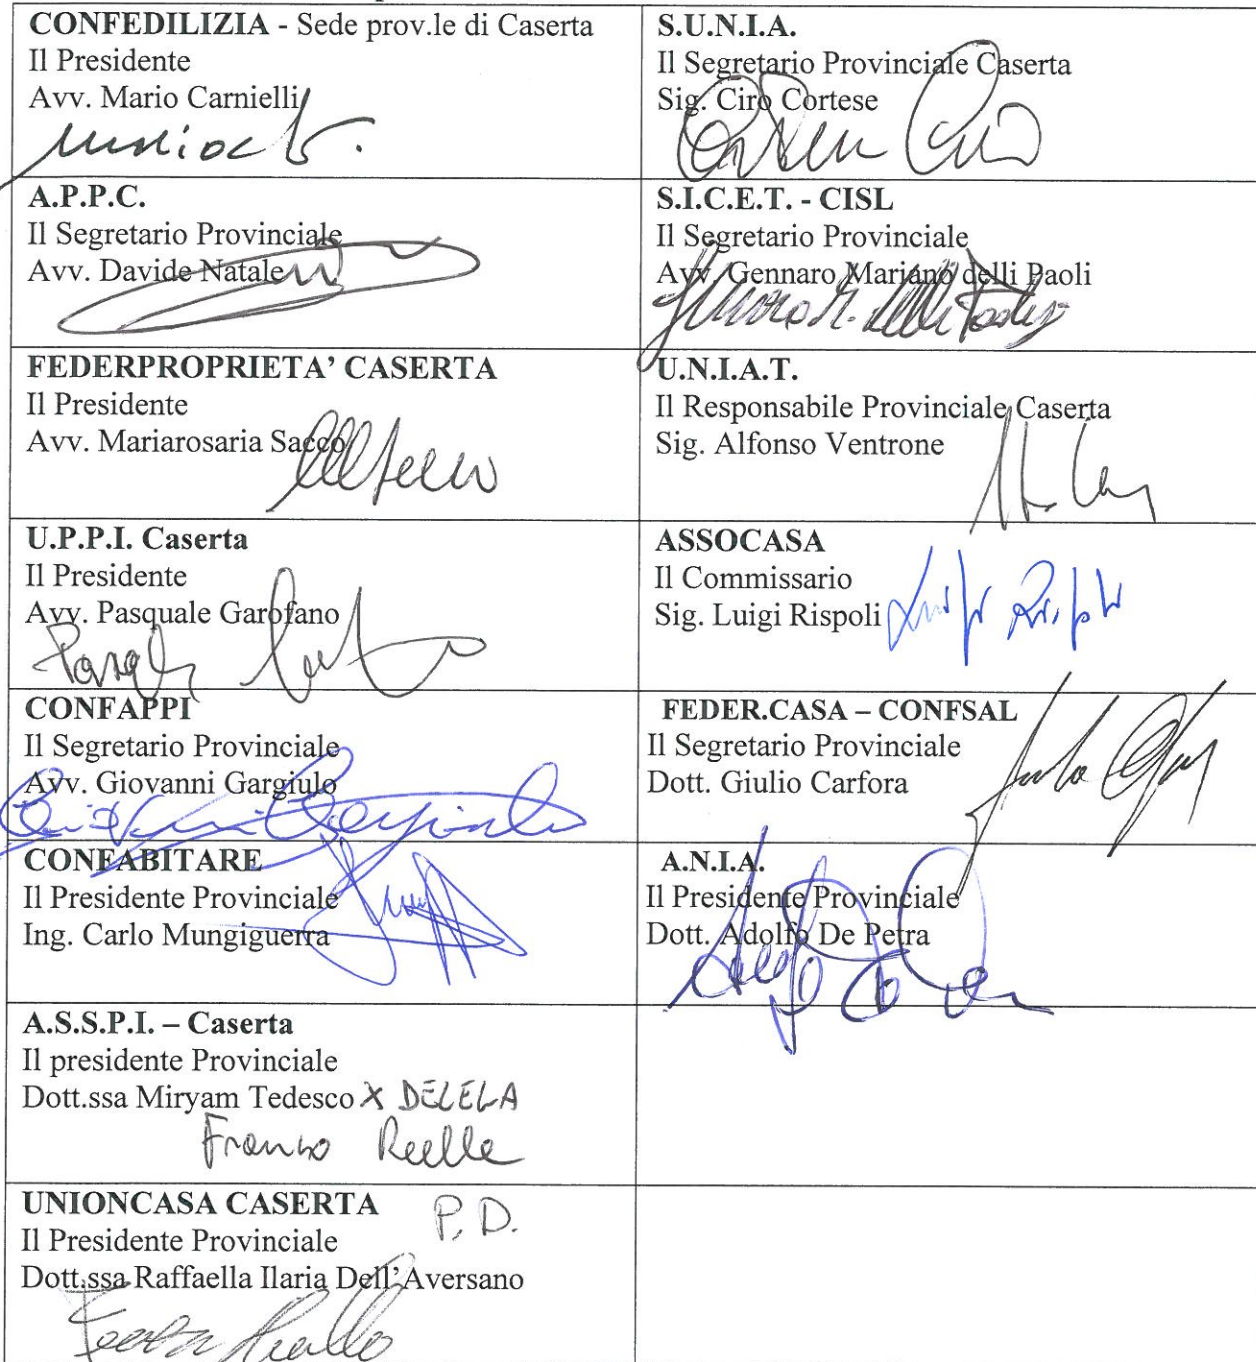 CONFEDILIZIA - Sede prov.le di Caserta
Il Presidente
Avv. Mario Carnielli
S.U.N.I.A.
Il Segretario Provinciale Caserta
Sig. Ciro Cortese
A.P.P.C.
Il Segretario Provinciale
Avv. Davide Natale
S.I.C.E.T. - CISL
Il Segretario Provinciale
Avv. Gennaro Mariano delli Paoli
FEDERPROPRIETA’ CASERTA
Il Presidente
Avv. Mariarosaria Sacco
U.N.I.A.T.
Il Responsabile Provinciale Caserta
Sig. Alfonso Ventrone
U.P.P.I. Caserta
Il Presidente
Avv. Pasquale Garofano
ASSOCASA
Il Commissario
Sig. Luigi Rispoli
CONFAPPI
Il Segretario Provinciale
Avv. Giovanni Gargiulo
FEDER.CASA – CONFSAL
Il Segretario Provinciale
Dott. Giulio Carfora
CONFABITARE
Il Presidente Provinciale
Ing. Carlo Mungiguerra
A.N.I.A.
Il Presidente Provinciale
Dott. Adolfo De Petra
A.S.S.P.I. – Caserta
Il presidente Provinciale
Dott.ssa Miryam Tedesco X DELEGA
Franco
UNIONCASA CASERTA P.D.
Il Presidente Provinciale
Dott.ssa Raffaella Ilaria Dell’Aversano